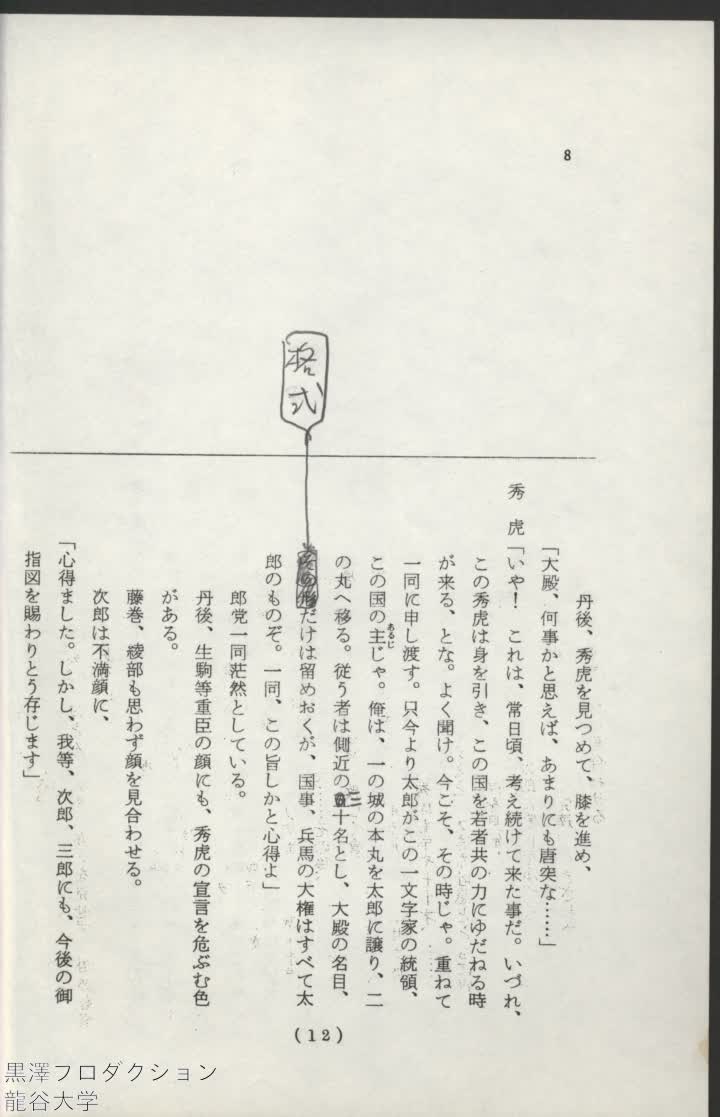 8
格式
丹後、秀虎を見つめて、膝を進め、
「大殿、何事かと思えば、あまりにも唐突な……」
秀虎「いや！　これは、常日頃、考え続けて来た事だ。いづれ、
この秀虎は身を引き、この国を若者共の力にゆだねる時
が来る、とな。よく聞け。今こそ、その時じゃ。重ねて
一同に申し渡す。只今より太郎がこの一文字家の統領、
この国の主じゃ。俺は、一の城の本丸を太郎に譲り、二
あるじ
の丸へ移る。従う者は側近の三十名とし、大殿の名目、
だけは留めおくが、国事、兵馬の大権はすべて太
郎のものぞ。一同、この旨しかと心得よ」
郎党一同茫然としている。
丹後、生駒等重臣の顔にも、秀虎の宣言を危ぶむ色
がある。
藤巻、綾部も思わず顔を見合わせる。
次郎は不満顔に、
「心得ました。しかし、我等、次郎、三郎にも、今後の御
指図を賜わりとう存じます」
(12)
黒澤プロダクション
龍谷大学